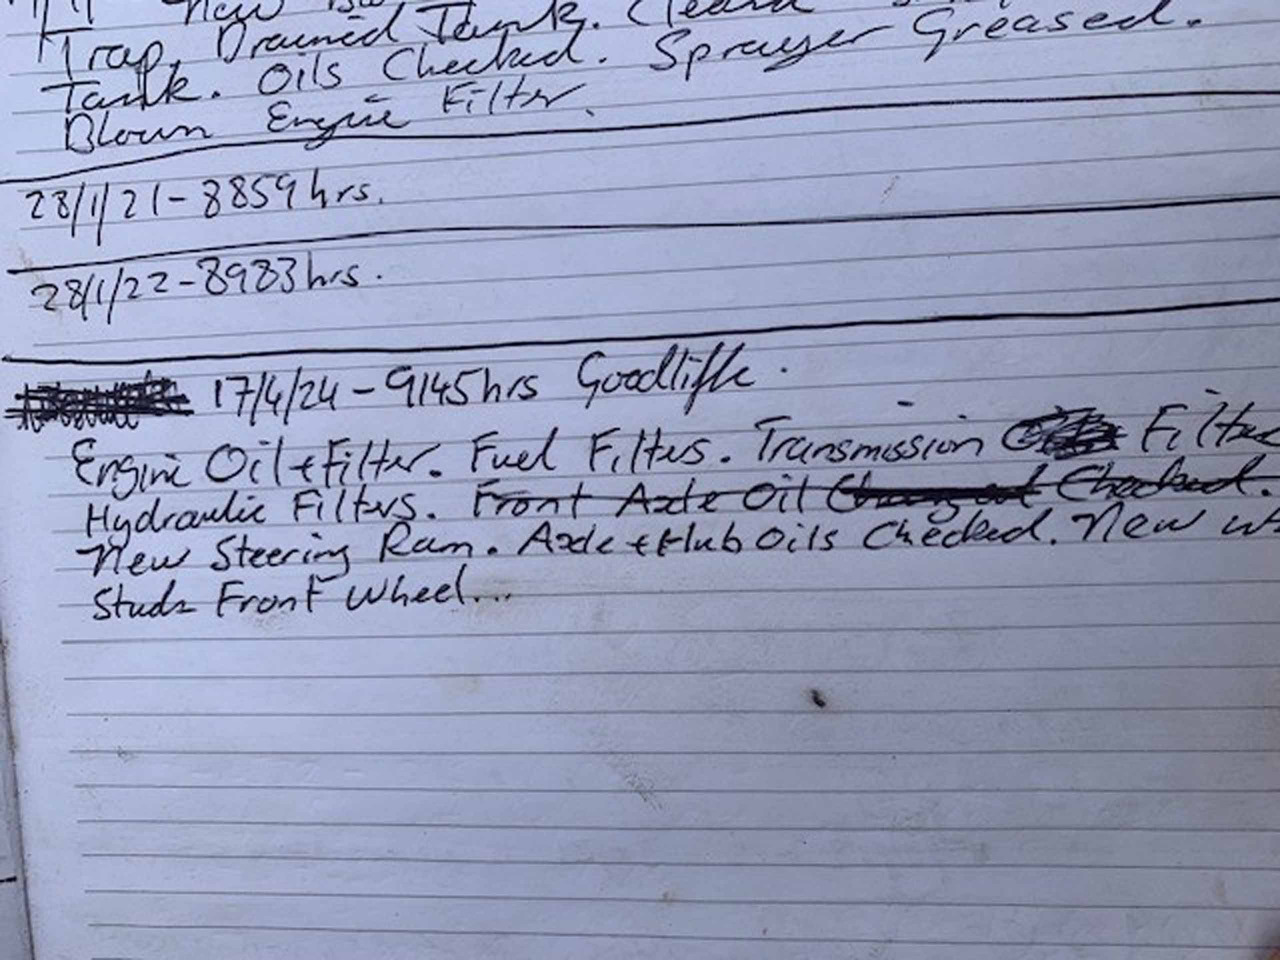 New
Trap. Drained Tank. Cleand
Tank. Oils Checked. Sprayer Greased.
Blown Engine Filter.
28/1/21 - 8859 hrs.
28/1/22 - 8983 hrs.
17/4/24 - 9145 hrs Goodliffe.
Engine Oil + Filter. Fuel Filters. Transmission Filter
Hydraulic Filters. Front Axle Oil Changed Checked.
New Steering Ram. Axle + Hub Oils Checked. New
Studs Front Wheel...